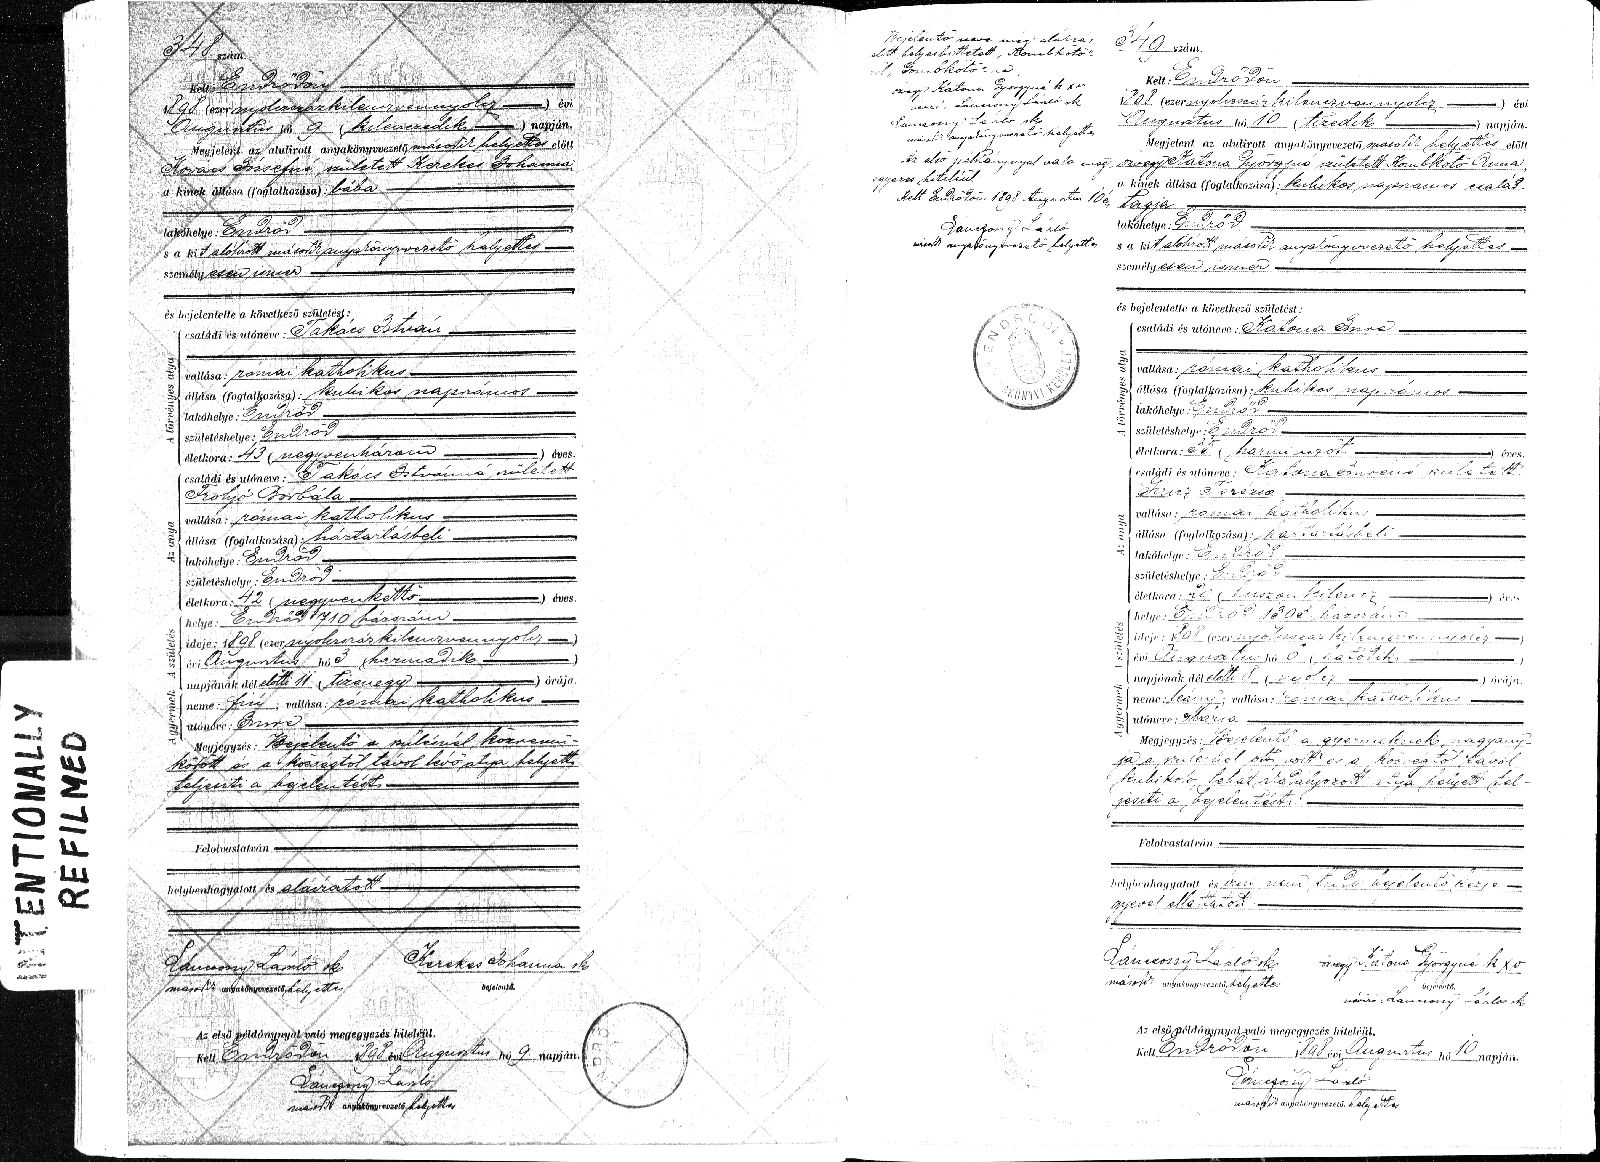 348 szám.
Kelt: Endrődön,
1898 (ezernyolcszázkilenczvennyolcz) évi
Augusztus hó 9 (kilenczedik) napján.
Megjelent az alulirott anyakönyvvezető másodh. helyettes előtt
Kovács Józsefné született Kerekes Johanna
a kinek állása (foglalkozása): bába
lakóhelye: Endrőd
s a kit alólirott másodh. anyakönyvvezető helyettes
személyesen ismer
és bejelentette a következő születést:
A törvényes atya
családi és utóneve: Takács István
vallása: római katholikus
állása (foglalkozása): kubikos napszámos
lakóhelye: Endrőd
születéshelye: Endrőd
életkora: 43 (negyvenhárom) éves.
Az anya
családi és utóneve: Takács Istvánné született
Borbála
vallása: római katholikus
állása (foglalkozása): háztartásbeli
lakóhelye: Endrőd
születéshelye: Endrőd
életkora: 42 (negyvenkettő) éves.
A születés
helye: Endrőd 710 házszám
ideje: 1898 (ezernyolcszázkilenczvennyolcz)
évi Augusztus hó 3 (harmadik)
napjának dél előtti 11 (tizenegy) órája.
A gyermek
neme: fiú; vallása: római katholikus
utóneve: Imre
Megjegyzés: Bejelentő a szülésnél közremű-
ködött és a községtől távol lévő atya helyett
teljesíti a bejelentést.
Felolvastatván
helybenhagyatott és aláiratott
Lánczony László sk Kerekes Johanna sk
másodh. anyakönyvvezető helyettes bejelentő.
Az első példánynyal való megegyezés hiteléül.
Kelt Endrődön 1898 évi Augusztus hó 9 napján.
Lánczony László
másodh. anyakönyvvezető helyettes
INTENTIONALLY
REFILMED
Bejelentő neve
özvegy Katona Györgyné k x v
Lánczony László sk
Lánczony László sk
másodh. anyakönyvvezető helyettes
Az első példánynyal való meg
egyezés hiteléül
Kelt Endrődön 1898 Augusztus 10én
Lánczony László
másodh. anyakönyvvezető helyettes
349 szám.
Kelt: Endrődön,
1898 (ezernyolcszázkilenczvennyolcz) évi
Augusztus hó 10 (tizedik) napján.
Megjelent az alulirott anyakönyvvezető másodh. helyettes előtt
özvegy Katona Györgyné született Anna
a kinek állása (foglalkozása): kubikos napszámos család
tagja
lakóhelye: Endrőd
s a kit alólirott másodh. anyakönyvvezető helyettes
személyesen ismer
és bejelentette a következő születést:
A törvényes atya
családi és utóneve: Katona Imre
vallása: római katholikus
állása (foglalkozása): kubikos napszámos
lakóhelye: Endrőd
születéshelye: Endrőd
életkora: 35 (harminczöt) éves.
Az anya
családi és utóneve: Katona Imréné született
Terézia
vallása: római katholikus
állása (foglalkozása): háztartásbeli
lakóhelye: Endrőd
születéshelye: Endrőd
életkora: 29 (huszonkilencz) éves
A születés
helye: Endrőd házszám
ideje: 1898 (ezernyolcszázkilenczvennyolcz)
évi Augusztus hó 6 (hatodik)
napjának dél előtti 8 (nyolcz) órája.
A gyermek
neme: leány; vallása: római katholikus
utóneve: Mária
Megjegyzés: Bejelentő a gyermeknek nagyany-
ja a szülésnél ott volt és a községtől távol
atya helyett tel-
jesíti a bejelentést.
Felolvastatván
helybenhagyatott és írni nem tudó bejelentő kézje-
gyével elláttatott
Lánczony László sk özvegy Katona Györgyné k x v
másodh. anyakönyvvezető helyettes bejelentő.
Lánczony László sk
Az első példánynyal való megegyezés hiteléül.
Kelt Endrődön 1898 évi Augusztus hó 10 napján.
Lánczony László
másodh. anyakönyvvezető helyettes